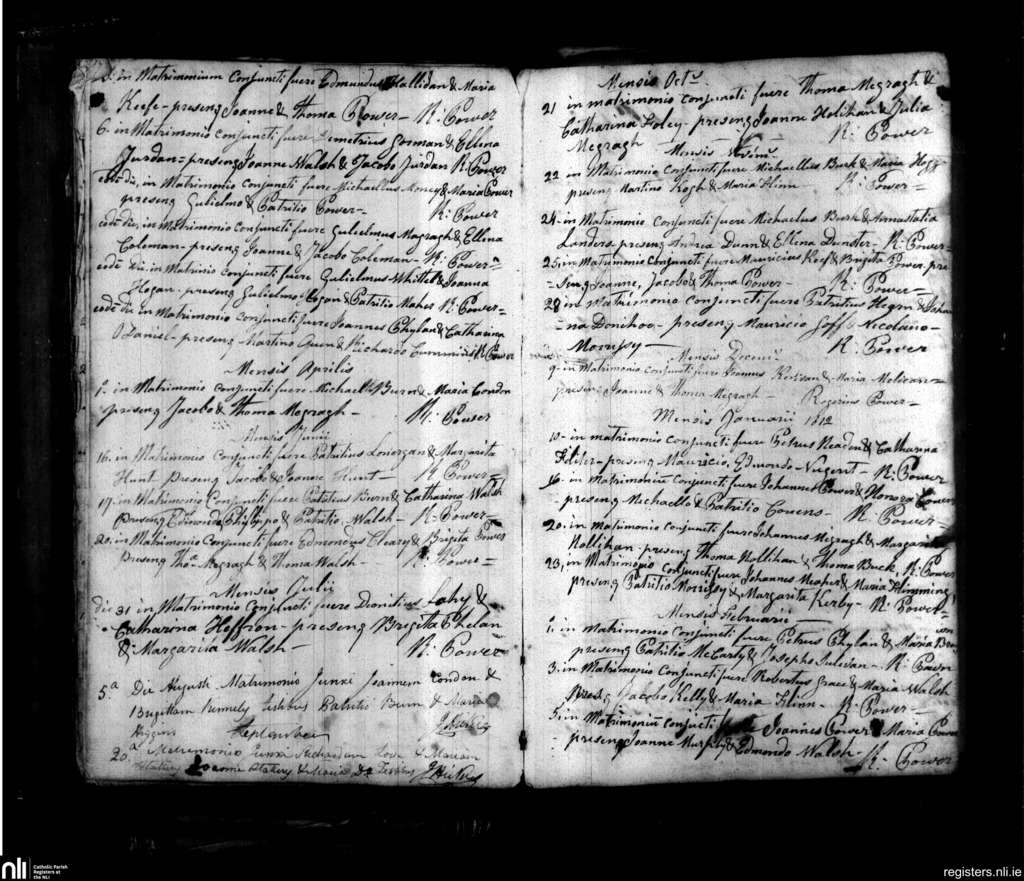 in Matrimonium Conjuncti fuere Edmundus Hallidan & Maria
Keefe - presenq Joanne & Thoma Power - R: Power
6. in Matrimonio conjuncti fuere Demetrius Gorman & Ellena
Jurdan = presenq Joanne Walsh & Jacobo Jurdan R: Power
eodm die, in Matrimonio Conjuncti fuere Michaellus & Maria Power
presenq Gulielmo & Patritio Power - R: Power
eodm die, in Matrimonio Conjuncti fuere Gulielmus Magragh & Ellena
Coleman - presenq Joanne & Jacobo Coleman - R: Power
eodm die in Matrimio conjuncti fuere Gulielmus Whittel & Joanna
Hogan - presenq Gulielmo Logan & Patritio Maher R: Power -
eodm die in Matrimonio conjuncti fuere Joannes Phylan & Catharina
Odaniel - presenq Martino Quin & Richardo Cummins R: Power
Mensis Aprilis
1. in Matrimonio Conjuncti fuere Michaell Burn & Maria Condon
presenq Jacobo & Thoma Megragh - R: Power
Mensis Junii
16. in Matrimonio Conjuncti fuere Patritius Lonorgan & Margarita
Hunt Presenq Jacobo & Joanne Hunt - R: Power -
17. in Matrimonio Conjuncti fuere Patritius Burn & Catharina Walsh
Presenq Edmundo Phillippo & Patritio Walsh - R: Power -
20. in Matrimonio Conjuncti fuere Edmondus Cleary & Brigita Power
Presenq Tho. Megragh & Thoma Walsh - R: Power =
Mensis Julii
Die 31 in Matrimonio Conjuncti fuere Donitius Lahy &
Catharina Heffron - presenq Bregita Phelan
& Margarita Walsh - R: Power
5.a Die Augusti Matrimonio Junxi Joannem Condon &
Brigittam testibus Patritio Burn & Maria
Higgins
September
20.a Matrimonio Junxi Richardum & Mariam
& Maria
Mensis Octr.
21 in matrimonio conjuncti fuere Thoma Megragh &
Catharina Foley - presenq Joanne Holihan & Julia
Megragh R: Power
Mensis
22 in Matrimonio Conjuncti fuere Michaellus Burk & Maria
presenq Martino Kegh & Maria Flinn - R: Power -
24 - in Matrimonio Conjuncti fuere Michaelus Burk & Annastatia
Landers presenq Andrea Dunn & Ellena Dunster - R: Power -
25, in Matrimonio Conjuncti fuere Mauricius Keef & Brigita Power, pre
senq Joanne, Jacobo & Thoma Power - R: Power -
28 in matrimonio conjuncti fuere Patritius Hegan & Joha
nna Donihoe - presenq Mauricio Goff & Nicolaiio
Morrissy - R: Power
Mensis Decemi
9. in Matrimonio Conjuncti fuere Joannes & Maria
presenq Joanne & Thoma Megragh - Rogerius Power -
Mensis Januarii 1812
10 - in matrimonio conjuncti fuere Petrus Reardon & Catharina
- presenq Mauricio, Edmondo Nugent - R: Power
16 - in Matrimonium Conjuncti fuere Johannes Power & Honora Cowens
- presenq Michaello & Patritio Cowens - R: Power -
20. in Matrimonio conjuncti fuere Johannes Megragh & Margarita
Hollihan - presenq Thoma Hollihan & Thoma Buck, R: Power
23, in Matrimonio Conjuncti fuere Johannes Meaher & Maria Flimming,
presenq Patritio Morrissy & Margarita Kerby - R: Power
Mensis Februarii -
1. in Matrimonio conjuncti fuere Petrus Phylan & Maria
presenq Patritio McCarty & Josepho Sulivan - R: Power
3. in Matrimonio Conjuncti fuere Robertus Grace & Maria Walsh
Presenq Jacobo Kelly & Maria Flinn - R: Power -
5. in Matrimonium conjuncti fuere Joannes Power & Maria Power
- presenq Joanne Murphy & Edmondo Walsh - R: Power
nli Catholic Parish
Registers at
the NLI
registers.nli.ie